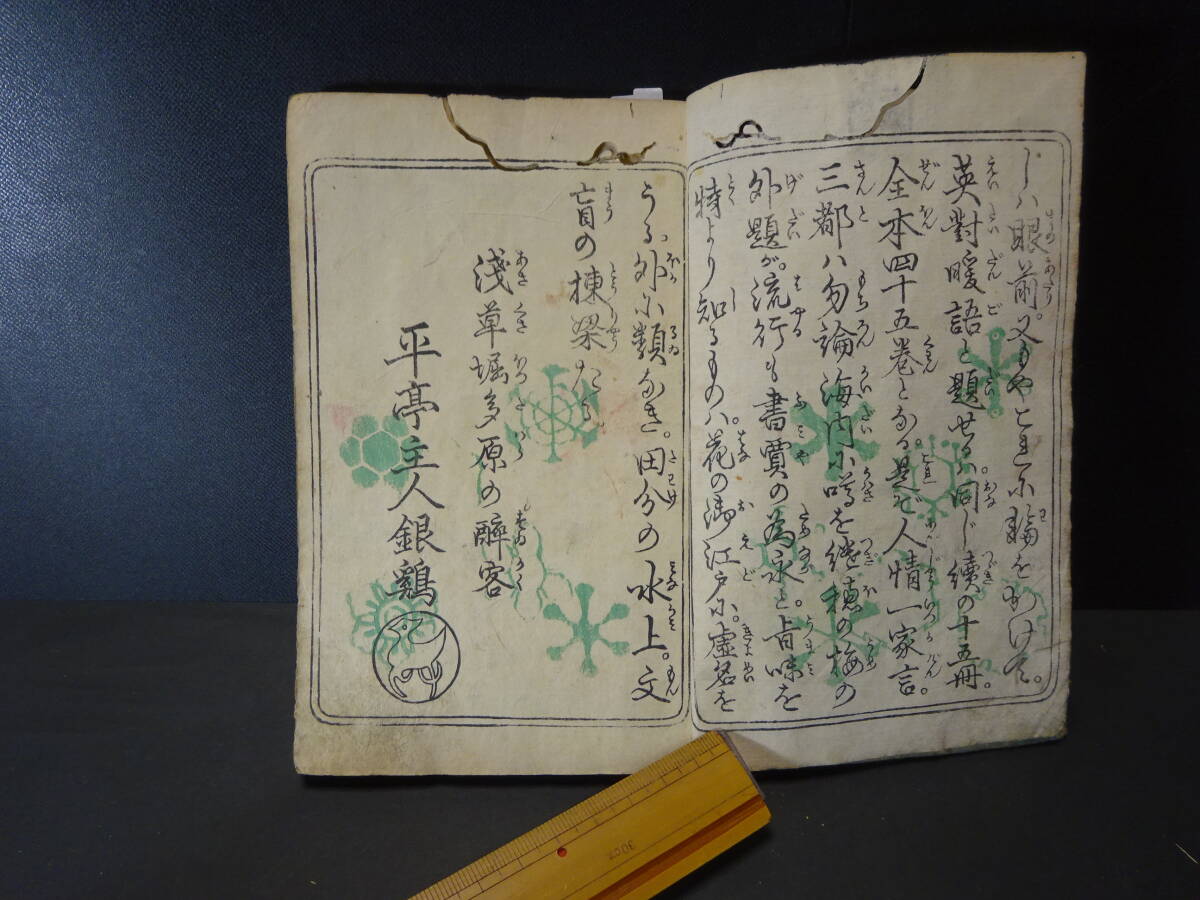 しハ眼前。又もやこれに輪をかけて。
英對暖語と題せるハ。同じ續の十五冊。
全本四十五巻となる。是ぞ人情一家言。
三都ハ勿論海内に噂を継穂の梅の
外題が。流行も書賈の為永と。旨味を
特より知るものハ。花の御江戸に。虚名を
うる。外に類なき。田分の水上。文
盲の棟梁たる
淺草堀多原の醉客
平亭主人銀鶏